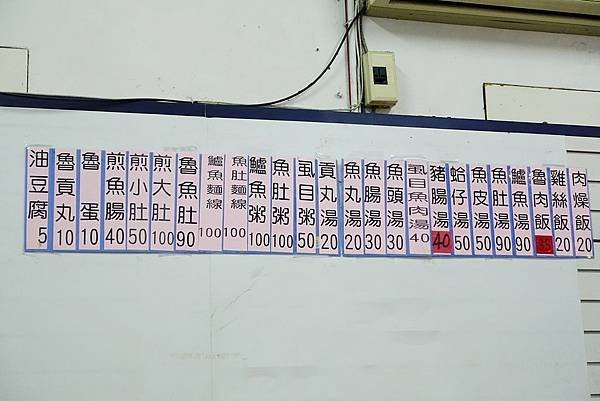 肉燥飯 20
雞絲飯 20
魯肉飯 35
鱸魚湯 90
魚肚湯 90
魚皮湯 50
蛤仔湯 50
豬腸湯 40
虱目魚肉湯 40
魚頭湯 30
魚腸湯 30
魚丸湯 20
貢丸湯 20
虱目粥 50
魚肚粥 100
鱸魚粥 100
魚肚麵線 100
鱸魚麵線 100
魯魚肚 90
煎大肚 100
煎小肚 50
煎魚腸 40
魯蛋 10
魯貢丸 10
油豆腐 5